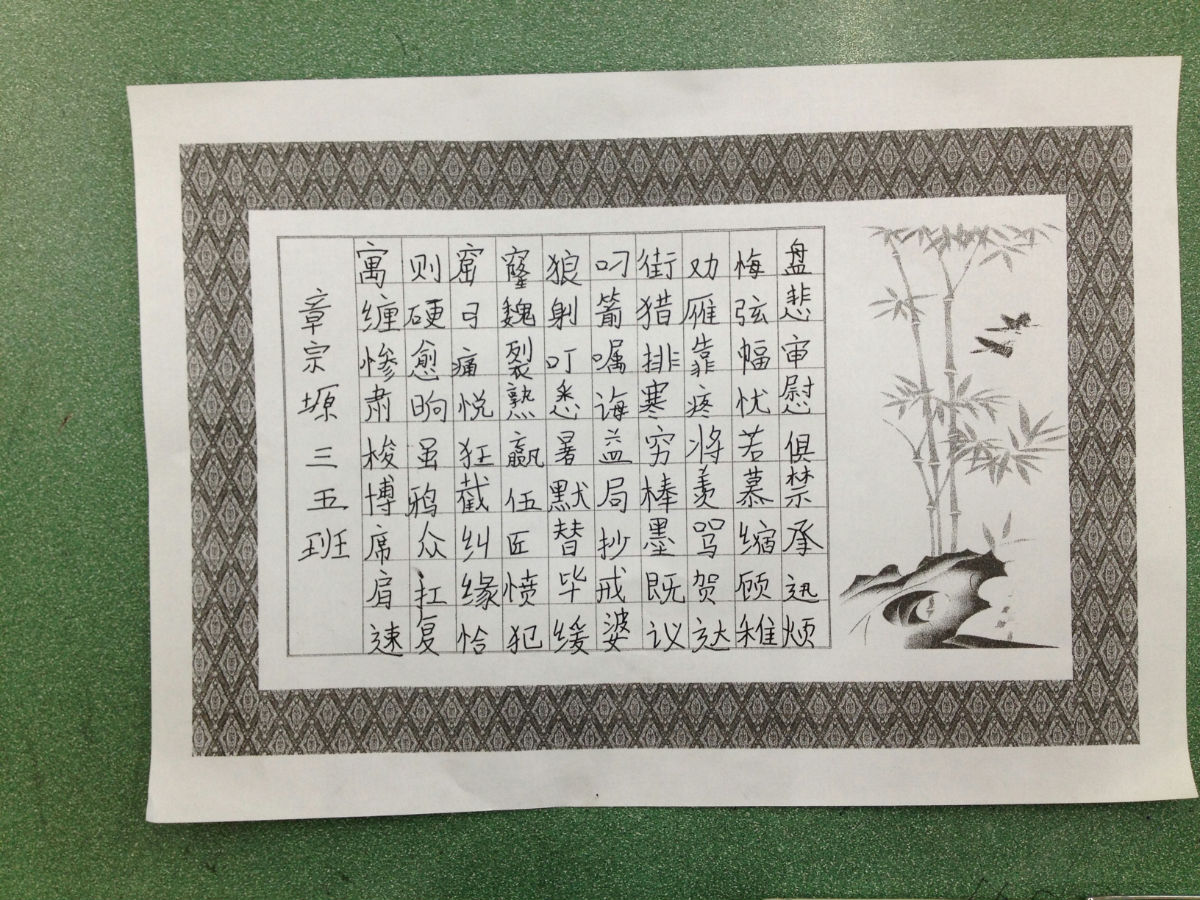 寓则窟窿狼叼街劝悔盘
缠硬司魏射箭猎雁弦悲
惨愈痛裂叮嘱排靠幅审
肃晌悦熟悉诲寒疼忧慰
梭虽狂赢暑益穷将若俱
博鸦截伍默局棒羡慕禁
席众纠匠替抄墨骂缩承
肩扛缘愤毕戒既贺顾迅
速复恰犯缓婆议达稚烦
章宗塬三五班